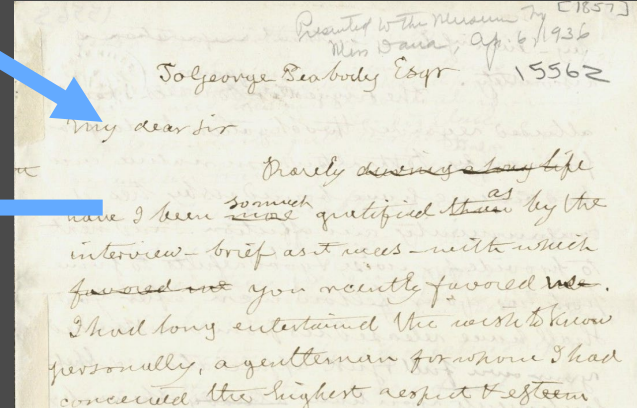 [1857]
Presented to the Museum by
Miss Dana, Ap. 6, 1936
15562
To George Peabody Esqr
My dear Sir
Rarely during a long life
have I been more so much gratified than as by the
interview - brief as it was - with which
favored me you recently favored me.
I had long entertained the wish to know
personally, a gentleman for whom I had
conceived the highest respect & esteem